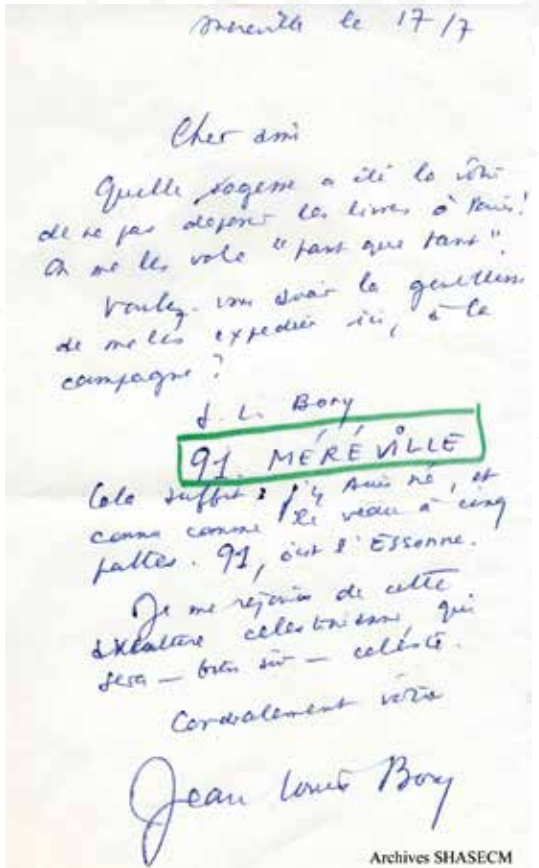 Méréville le 17/7
Cher ami
Quelle sagesse a été la vôtre
de ne pas déposer les livres à Paris!
On me les vole "tant que tant".
Voulez-vous avoir la gentillesse
de me les expédier ici, à la
campagne?
J. L. Bory
91. MÉRÉVILLE
Cela suffit: j'y suis né, et
connu comme le veau à cinq
pattes. 91, c'est l'Essonne.
Je me réjouis de cette
célestinienne, qui
sera — bien sûr — céleste.
Cordialement vôtre
Jean Louis Bory
Archives SHASECM